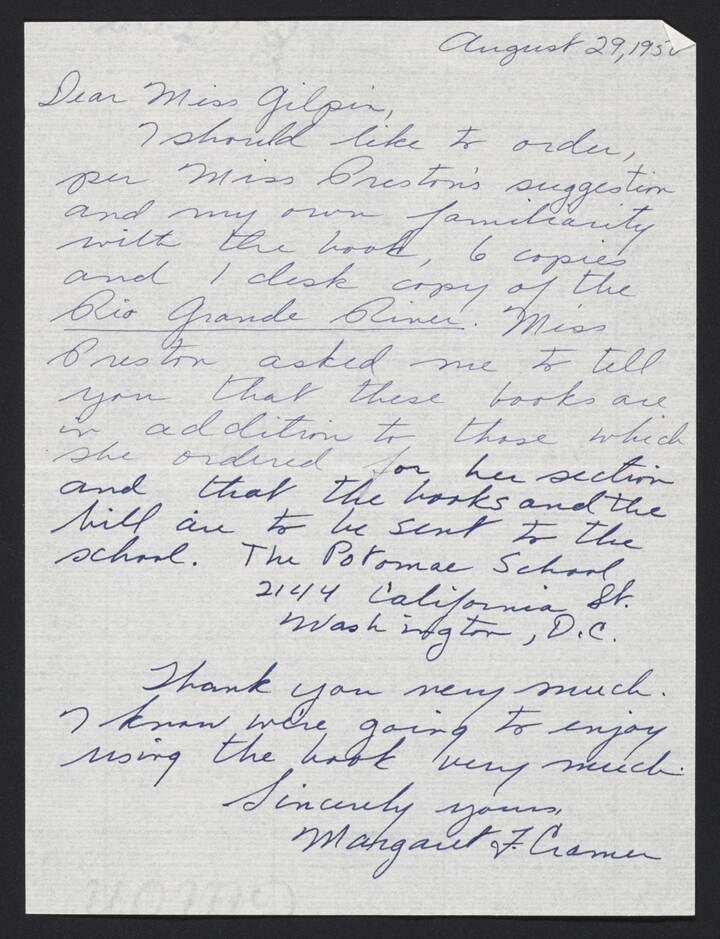 August 29, 1950
Dear Miss Gilpin,
I should like to order,
per Miss Preston's suggestion
and my own familiarity
with the book, 6 copies
and 1 desk copy of the
Rio Grande River. Miss
Preston asked me to tell
you that these books are
in addition to those which
she ordered for her section
and that the books and the
bill are to be sent to the
school. The Potomac School
2144 California St.
Washington, D.C.
Thank you very much.
I know we're going to enjoy
using the book very much.
Sincerely yours,
Margaret F. Cramer